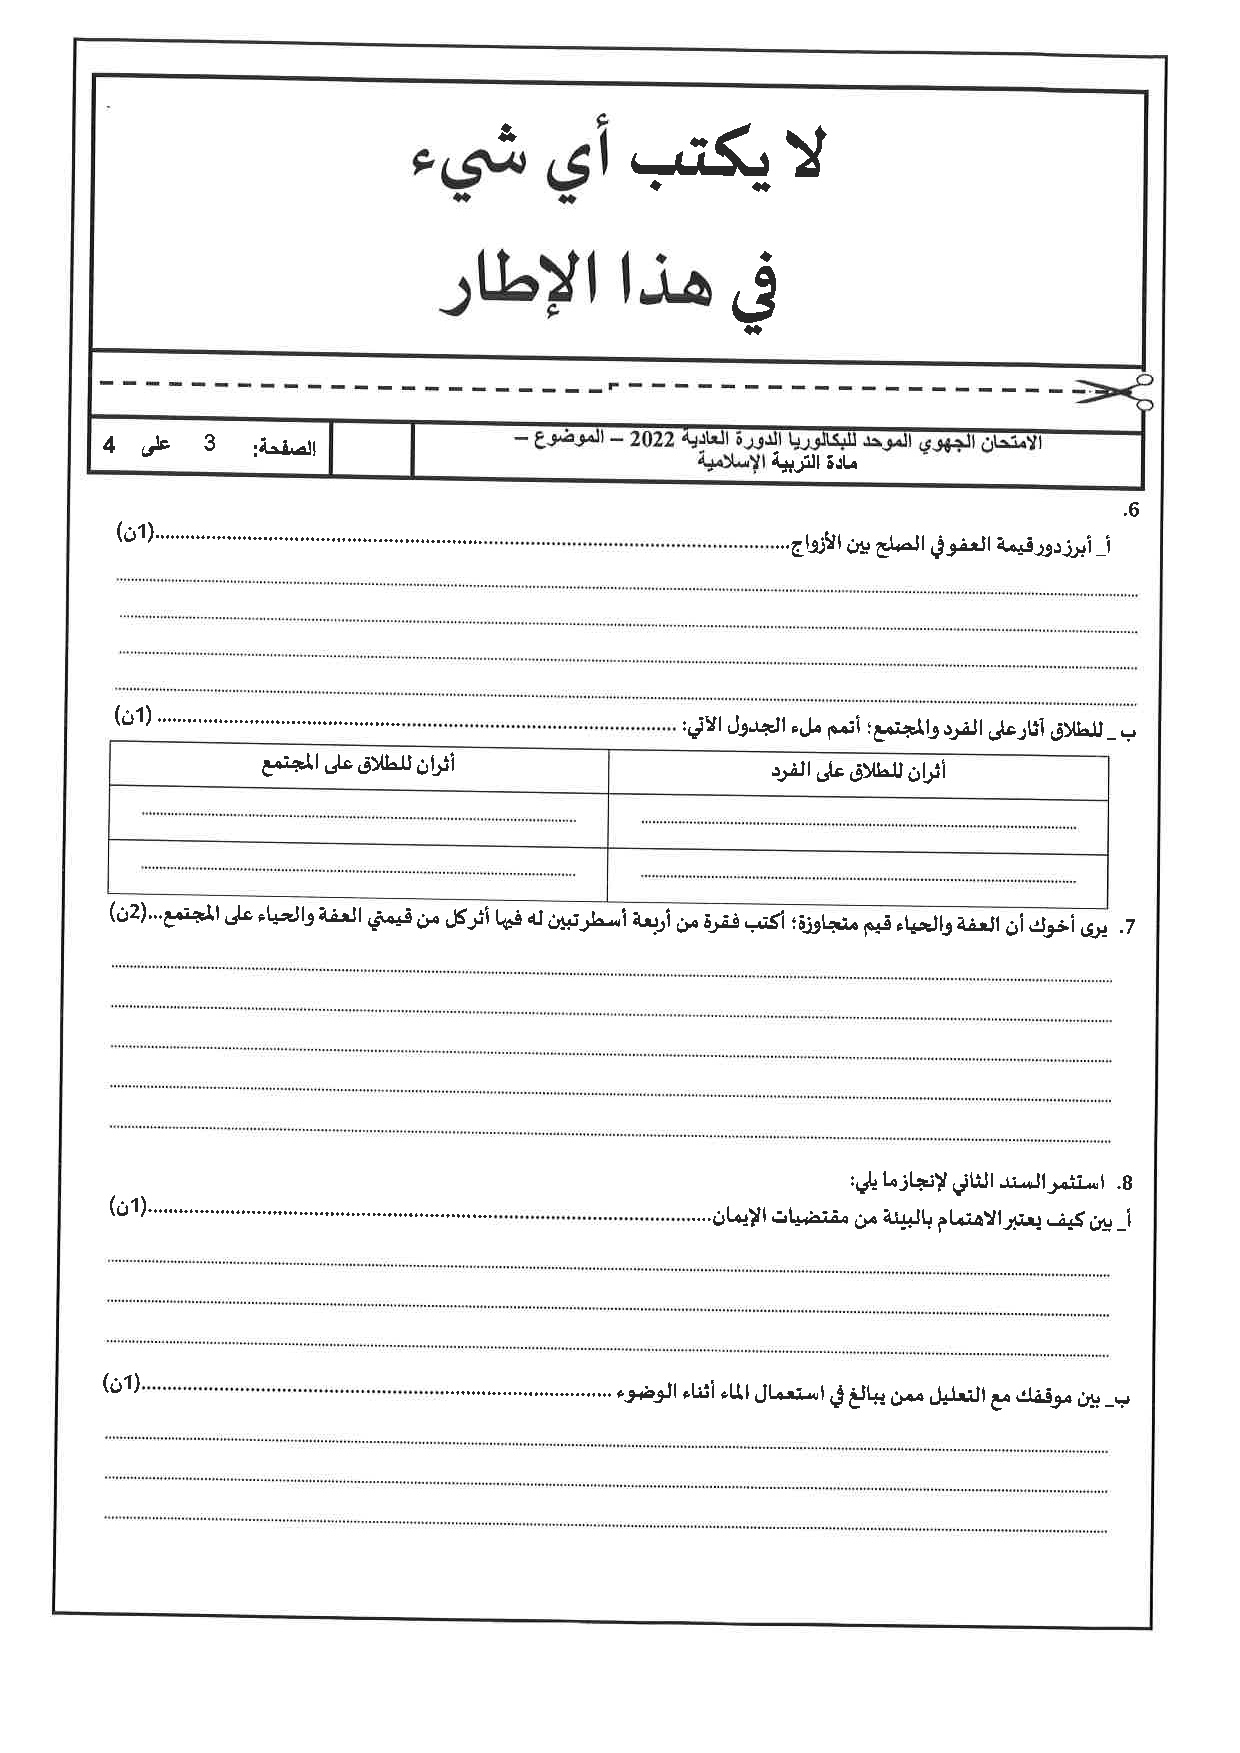 لا يكتب أي شيء
في هذا الإطار
الامتحان الجهوي الموحد للبكالوريا الدورة العادية 2022 – الموضوع –
مادة التربية الإسلامية
الصفحة: 3 على 4
6.
أ_ أبرز دور قيمة العفو في الصلح بين الأزواج........................(1ن)
ب _ للطلاق آثار على الفرد والمجتمع؛ أتمم ملء الجدول الآتي: ........................ (1ن)
أثران للطلاق على الفرد أثران للطلاق على المجتمع
7. يرى أخوك أن العفة والحياء قيم متجاوزة؛ أكتب فقرة من أربعة أسطر تبين له فيها أثر كل من قيمتي العفة والحياء على المجتمع...(2ن)
8. استثمر السند الثاني لإنجاز ما يلي:
أ_ بين كيف يعتبر الاهتمام بالبيئة من مقتضيات الإيمان........................(1ن)
ب_ بين موقفك مع التعليل ممن يبالغ في استعمال الماء أثناء الوضوء ........................(1ن)